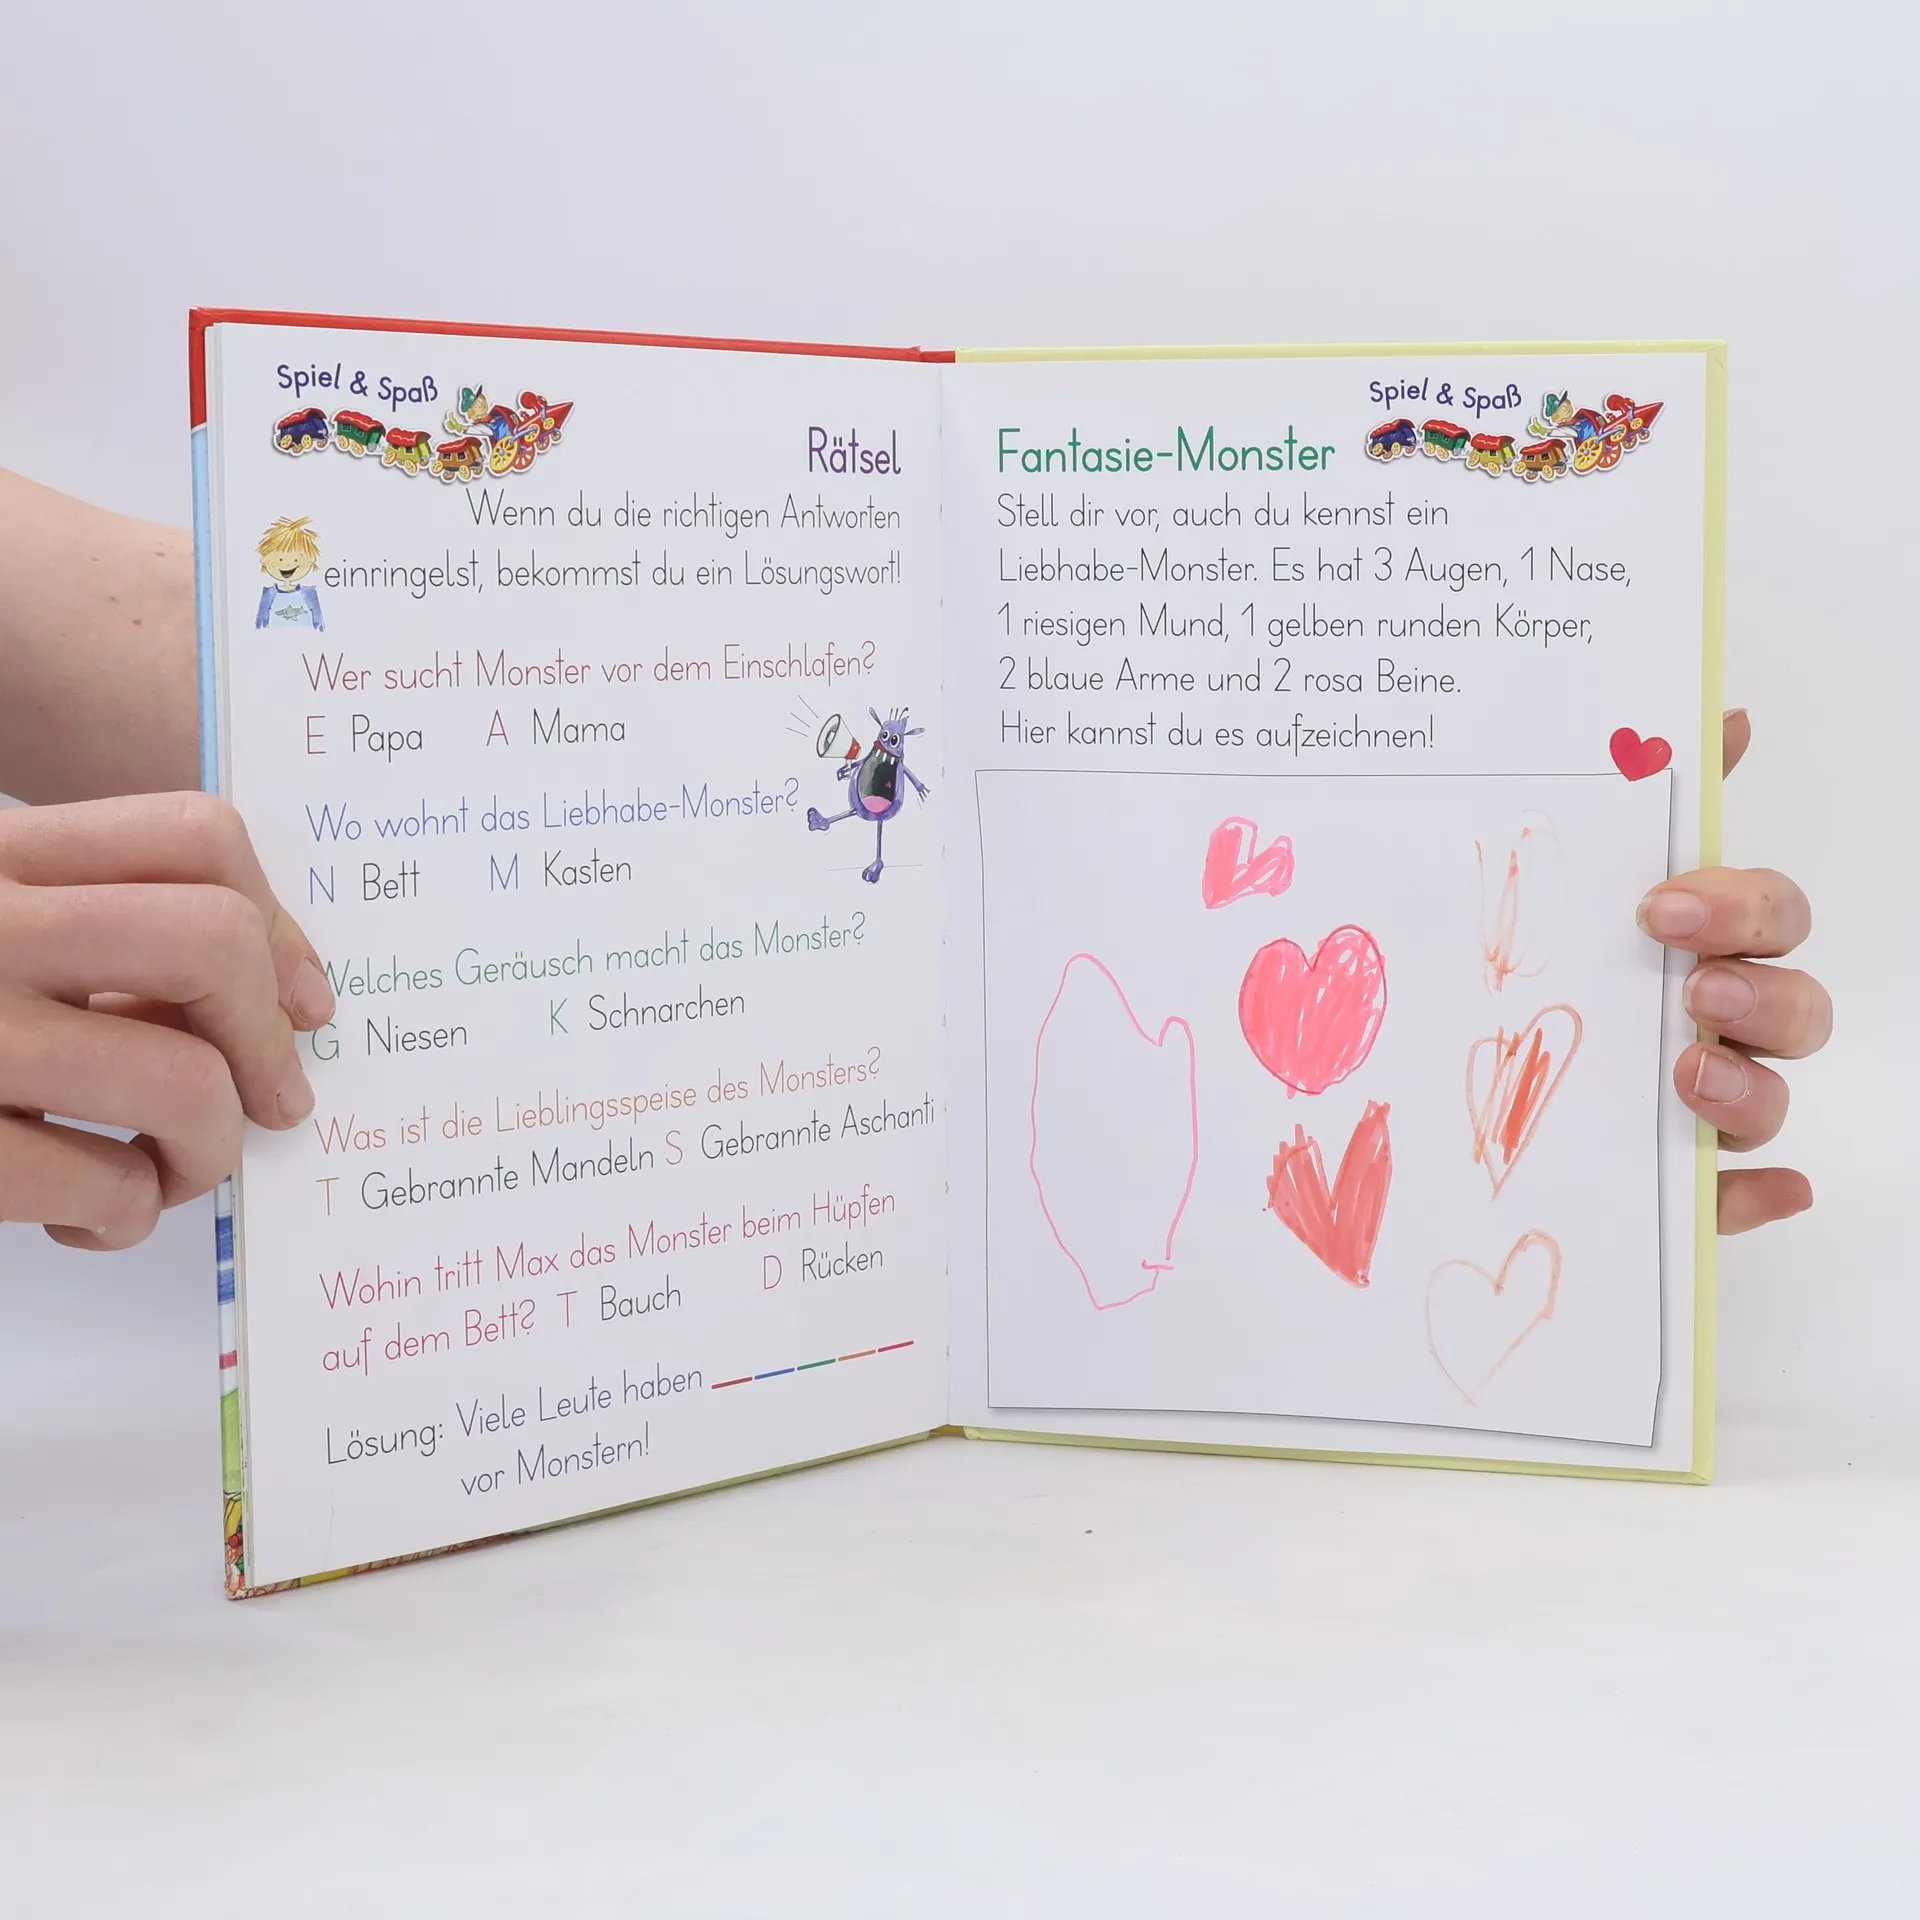 Spiel & Spaß
Rätsel
Wenn du die richtigen Antworten
einringelst, bekommst du ein Lösungswort!
Wer sucht Monster vor dem Einschlafen?
E Papa A Mama
Wo wohnt das Liebhabe-Monster?
N Bett M Kasten
Welches Geräusch macht das Monster?
G Niesen K Schnarchen
Was ist die Lieblingsspeise des Monsters?
T Gebrannte Mandeln S Gebrannte Aschanti
Wohin tritt Max das Monster beim Hüpfen
auf dem Bett? T Bauch D Rücken
Lösung: Viele Leute haben
vor Monstern!
Spiel & Spaß
Fantasie-Monster
Stell dir vor, auch du kennst ein
Liebhabe-Monster. Es hat 3 Augen, 1 Nase,
1 riesigen Mund, 1 gelben runden Körper,
2 blaue Arme und 2 rosa Beine.
Hier kannst du es aufzeichnen!